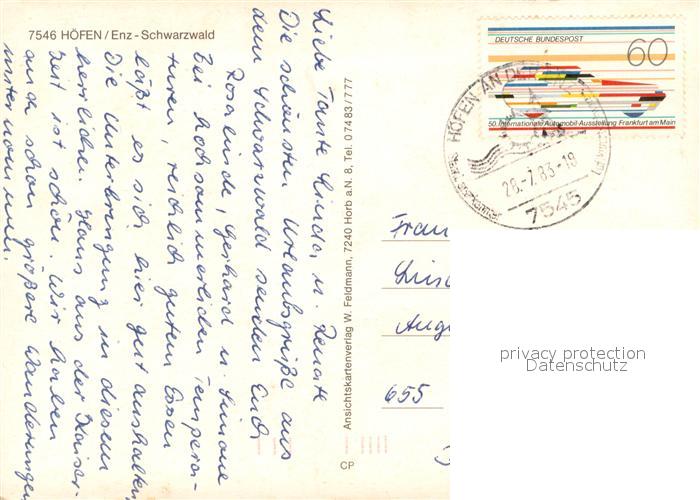 7546 HÖFEN / Enz - Schwarzwald
Liebe Tante Linda, u. Renate
Die schönsten Urlaubsgrüße aus
dem Schwarzwald senden Euch
Rosalinde, Gerhard u. Simone
Bei hochsommerlichen Tempera-
turen, reichlich gutem Essen
läßt es sich hier gut aushalten,
Die Unterbringung in diesem
herrlichen Haus aus der Kaiser-
zeit ist schön. Wir haben
auch schon größere Wanderungen
unternommen.
Ansichtskartenverlag W. Feldmann, 7240 Horb a.N. 8, Tel. 07483/777
CP
DEUTSCHE BUNDESPOST
60
50. Internationale Automobil-Ausstellung Frankfurt am Main
HÖFEN AN D
28.-7.83-18
7545
Fran
Augu
655
privacy protection
Datenschutz